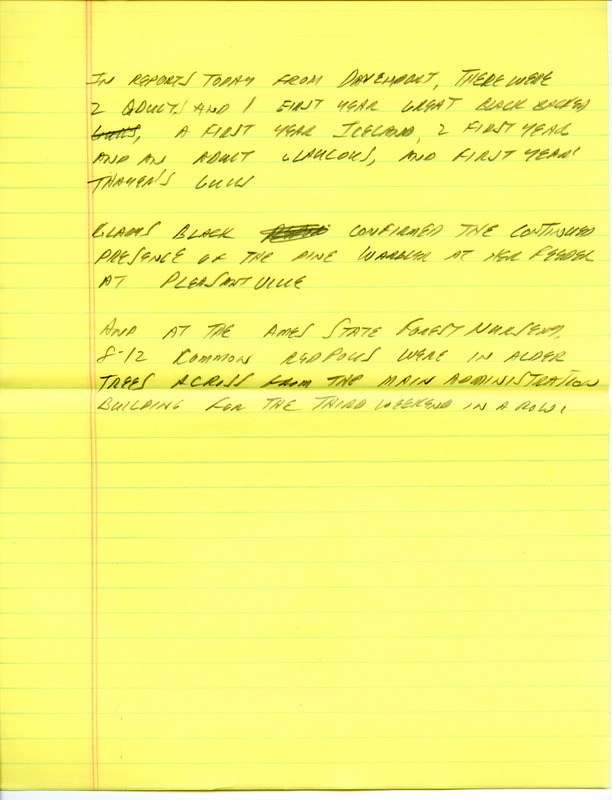 IN REPORTS TODAY FROM DAVENPORT, THERE WERE
2 ADULTS AND 1 FIRST YEAR GREAT BLACK BACKED
GULLS, A FIRST YEAR ICELAND, 2 FIRST YEAR
AND AN ADULT GLAUCOUS, AND FIRST YEAR
THAYER'S GULLS
GLADYS BLACK CONFIRMED THE CONTINUED
PRESENCE OF THE PINE WARBLER AT HER FEEDER
AT PLEASANTVILLE
AND AT THE AMES STATE FOREST NURSERY,
8-12 COMMON REDPOLLS WERE IN ALDER
TREES ACROSS FROM THE MAIN ADMINISTRATION
BUILDING FOR THE THIRD WEEKEND IN A ROW.